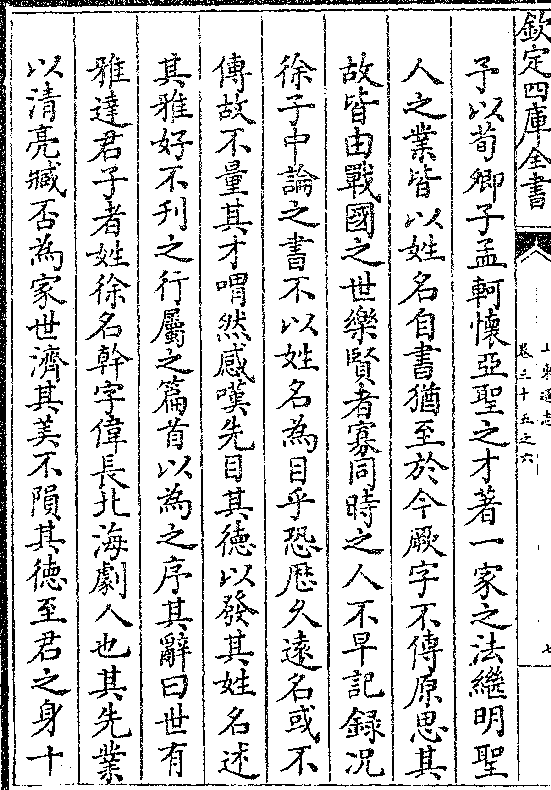 欽定四庫全書
山東通志
卷三十五之六
七
予以荀卿子孟軻懷亞聖之才著一家之法繼明聖
人之業皆以姓名自書猶至於今厥字不傳原思其
故皆由戰國之世樂賢者寡同時之人不早記錄况
徐子中論之書不以姓名為目乎恐歴久逺名或不
傳故不量其才喟然感嘆先目其德以發其姓名述
其雅好不刋之行屬之篇首以為之序其辭曰世有
雅達君子者姓徐名幹字偉長北海劇人也其先業
以清亮臧否為家世濟其美不隕其德至君之身十